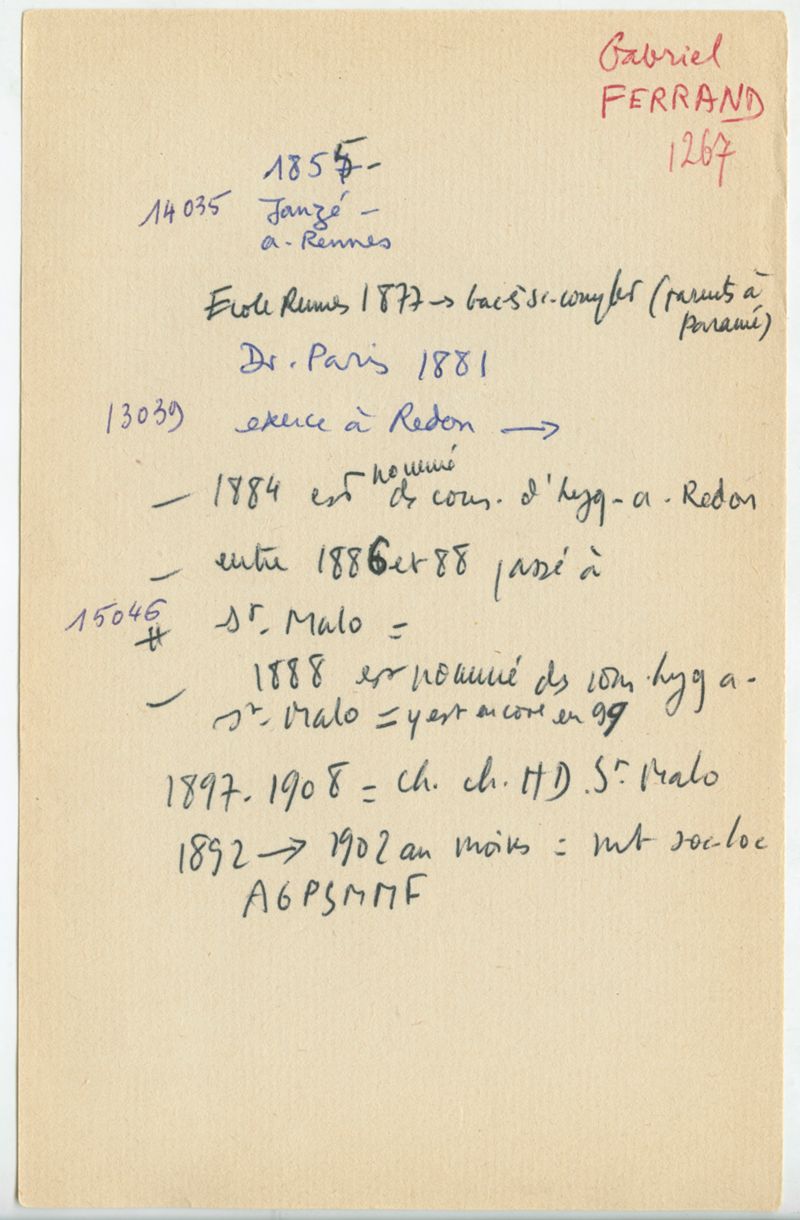 Gabriel
FERRAND
1267
1855 -
14035 Janzé -
a. Rennes
Ecole Rennes 1877 → bac-ès sc. complet (parents à
Paramé)
Dr. Paris 1881
13039 exerce à Redon →
nommé
- 1884 est ds cons. d'hyg. a. Redon
- entre 1886 et 88 passé à
15046
# St. Malo =
- 1888 est nommé ds cons. hyg a.
St. Malo = y est encore en 99
1897. 1908 = ch. ch. HD. St Malo
1892 → 1902 au moins = soc. loc
AGPSMMF